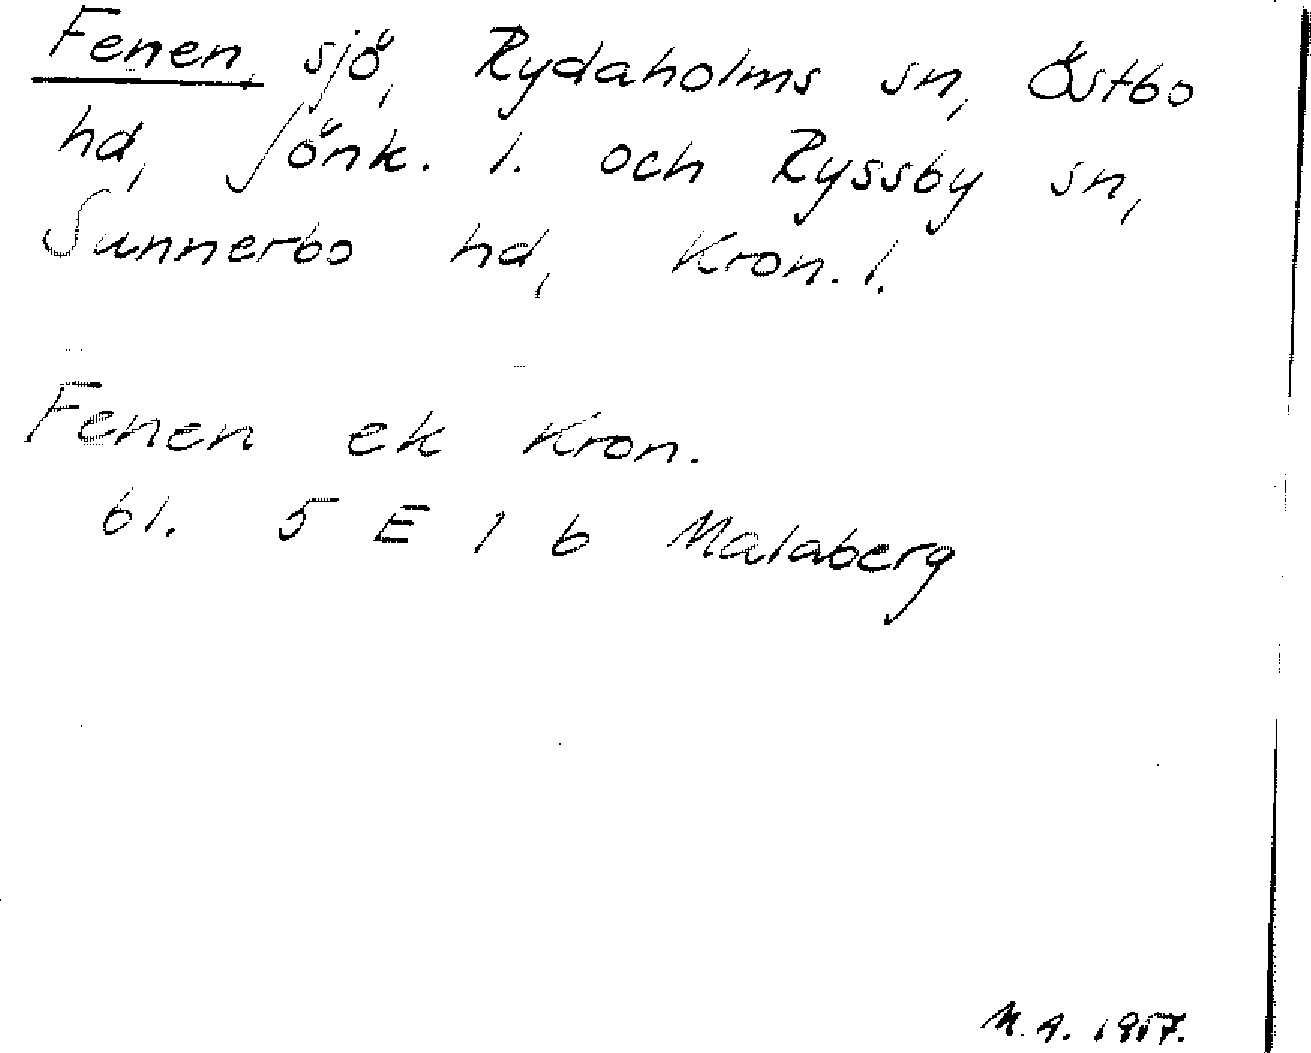 Fenen, sjö, Rydaholms sn, Östbo
hd, Jönk. l. och Ryssby sn,
Sunnerbo hd, Kron. l.
Fenen ek Kron.
bl. 5 E 1 b Malaberg
M. A. 1957.